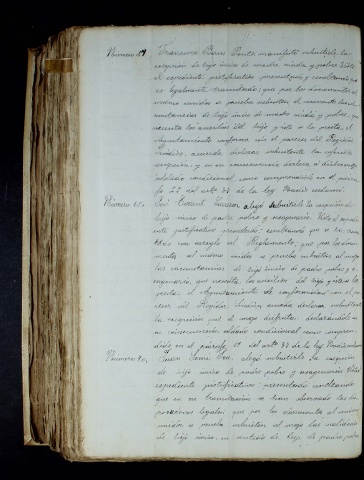 Número 59 Francisco Pérez manifestó subsistirle la
excepción de hijo único de madre viuda y pobre. Visto
el expediente justificativo presentado y considerando
es legalmente tramitado; que por los documentos al
mismo unidos se prueba subsisten al recurrente las cir-
cunstancias de hijo único de madre viuda y pobre, que
necesita los auxilios del hijo y éste se los presta, el
Ayuntamiento conforme con el parecer del Regidor
Síndico, acuerda declarar subsistente la referida
excepción, y en su consecuencia declara a dicho mozo
soldado condicional, como comprendido en el párra-
fo 2º del artº 87 de la ley. Nadie reclamó.
Número 65. José alegó subsistirle la excepción de
hijo único de padre pobre y sexagenario. Visto el expe-
diente justificativo presentado; considerando que se ha tra-
mitado con arreglo al Reglamento; que por los docu-
mentos al mismo unidos se prueba subsisten al mozo
las circunstancias de hijo único de padre pobre y se-
xagenario, que necesita los auxilios del hijo y éste se los
presta, el Ayuntamiento de conformidad con el pa-
recer del Regidor Síndico, acuerda declarar subsistente
la excepción que el mozo disfruta, declarándole
en su consecuencia soldado condicional como compren-
dido en el párrafo 1º del artº 87 de la ley. Nadie reclamó.
Número 90. alegó subsistirle la excepción
de hijo único de padre pobre y sexagenario. Visto
expediente justificativo presentado resultando
que en su tramitación se han observado las dis-
posiciones legales; que por los documentos al mismo
unidos se prueba subsisten al mozo las cualidades
de hijo único, en sentido de ley, de padre pobre